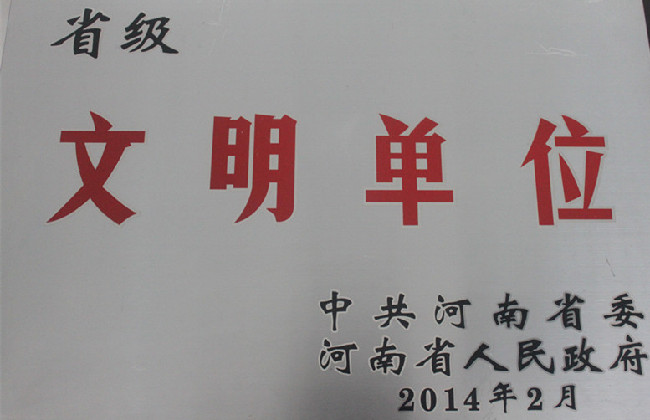 省级
文明单位
中共河南省委
河南省人民政府
2014年2月